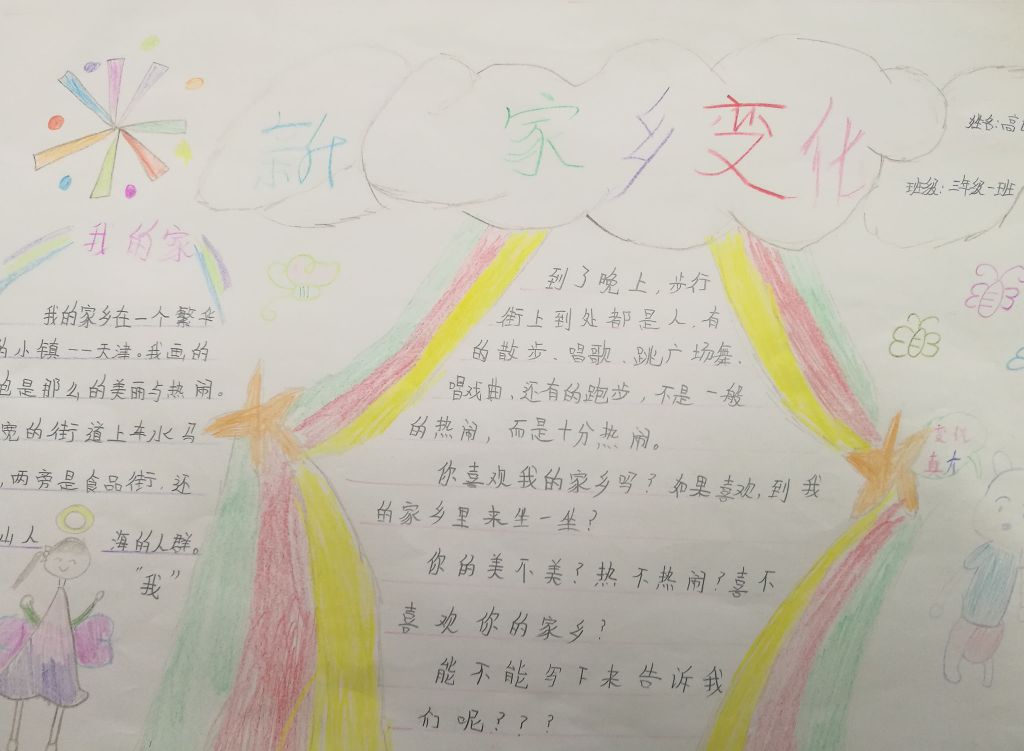 新家乡变化
姓名:高
班级:三年级一班
我的家
我的家乡在一个繁华
的小镇--天津。我画的
也是那么的美丽与热闹。
宽的街道上车水马
,两旁是食品街.还
山人 海的人群。
"我"
到了晚上,步行
街上到处都是人.有
的散步、唱歌、跳广场舞、
唱戏曲、还有的跑步,不是一般
的热闹,而是十分热闹。
你喜欢我的家乡吗?如果喜欢,到我
的家乡里来坐一坐?
你的美不美?热不热闹?喜不
喜欢你的家乡?
能不能写下来告诉我
们呢???
变化
真大